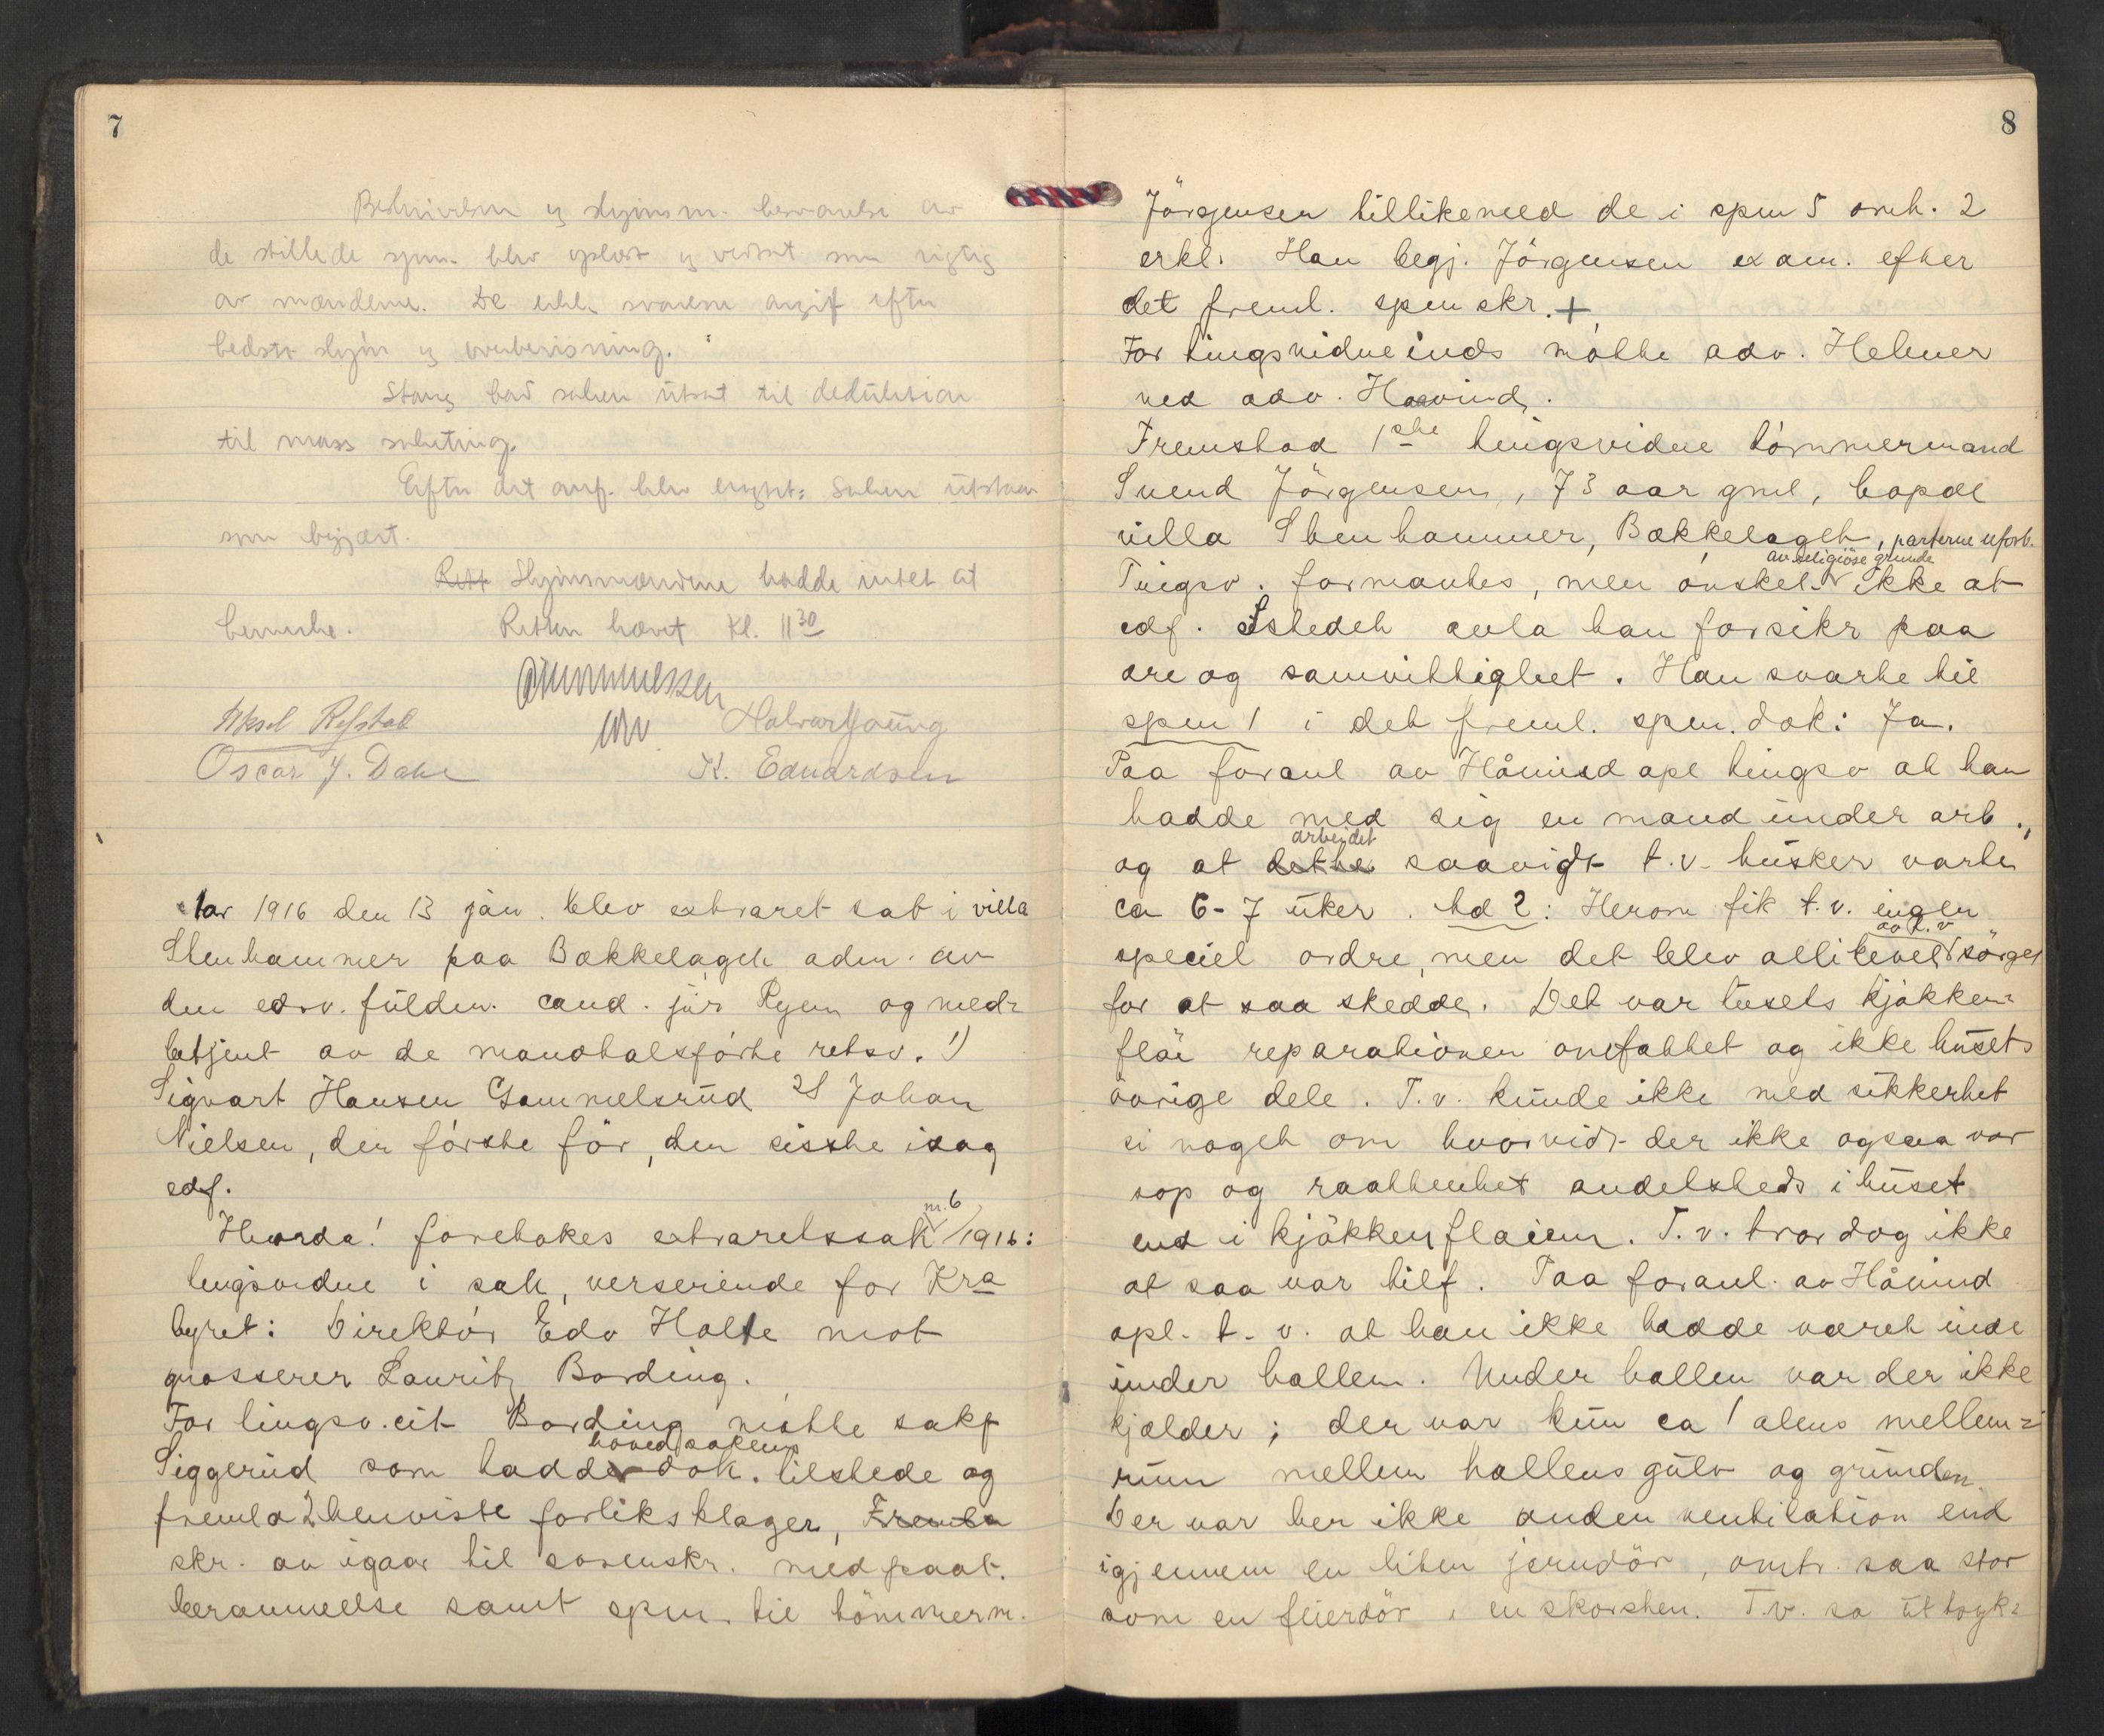 7
Beskrivelsen og skjønsm. besvarelse av
de stillede spm. blev oplæst og vedtat som rigtig
av mændene. De erkl. svarene avgit efter
bedste skjøn og overbevisning.
Stang bad saken utsat til deduktion
til mass sakuting.
Efter det anf. blev avgjort: Saken utstaar
som begjært.
Rett Skjønsmændene hadde intet at
bemerke. Retten hævet Kl. 11 30
Aksel Refstad Halvar Young
Oscar J. Dahl K. Edvardsen
Aar 1916 den 13 jan. blev extraret sat i villa
Stenhammer paa Bækkelaget adm. av
den edsv. fuldm. cand. jur Ryen og med-
betjent av de mandtalsførte retsv. 1)
Sigvart Hansen Gammelsrud 2) Johan
Nielsen, den første før, den sisste idag
edf.
Hvorda! foretokes extraretssak nr. 6/1916:
tingsvidne i sak, verserende for Kra
byret: Direktør Edv Holte mot
grosserer Lauritz Bording.
For tingsv.cit Bording møtte sakf
Siggerud som hadde hovedsakens dok. tilstede og
freml a 2 henviste forliksklager, Fremla
skr. av igaar til sorenskr. med paat.
berammelse samt spm. til tömmerm.
8
Jörgensen tillikemed de i spm 5 omh. 2
erkl. Han begj. Jörgensen exam. efter
det freml. spm skr. +
For tingsvidneinds møtte adv. Helmer
ved adv. Haavind.
Fremstod 1ste tingsvidne tömmermand
Svend Jörgensen, 73 aar gml, bopæl
villa Stenhammer, Bækkelaget, parterne uforb.
Tingsv. formantes, men ønsket av religiøse grunde ikke at
edf. Istedet avla han forsikr paa
ære og samvittighet. Han svarte til
spm 1 i det freml. spm. dok: Ja.
Paa foranl av Håvind opl tingsv at han
hadde med sig en mand under arb.,
og at dette arbeidet saavidt t.v. husker varte
ca 6-7 uker. Ad 2: Herom fik t.v. ingen
speciel ordre, men det blev allikevel av t.v sörget
for at saa skedde. Det var husets kjökken-
fløi reparationen omfattet og ikke husets
övrige dele. T.v. kunde ikke med sikkerhet
si noget om hvorvidt der ikke ogsaa var
sop og raattenhet andetsteds i huset
end i kjökkenfløien. T.v. tror dog ikke
at saa var tilf. Paa foranl. av Håvind
opl. t.v. at han ikke hadde været inde
under hallen. Under hallen var der ikke
kjælder; der var kun ca 1 alens mellem-
rum mellem hallens gulv og grunden.
Der var her ikke anden ventilation end
igjennem en liten jerndör, omtr. saa stor
som en feierdör i en skorsten. T.v. sa uttryk-